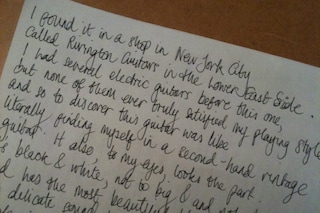 I found it in a shop in New York City
Called Rivington Guitars in the Lower East Side.
I had several electric guitars before this one,
but none of them ever truly satisfied my playing style
and so to discover this guitar was like
literally finding myself in a second-hand vintage
guitar. It also, to my eyes, looks the part.
s black & white, not to big & not
d has the most beautiful
delicate sound